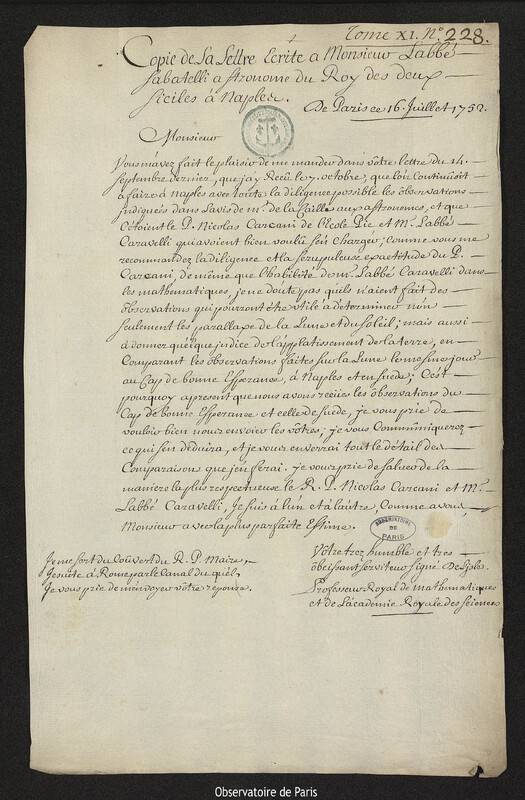 Tome XI. N.º 228.
Copie de la Lettre Ecrite a Monsieur Labbé
Sabatelli astronome du Roy des deux
Siciles à Naples.
De Paris ce 16. Juillet 1752.
Monsieur
Vous m'avez fait le plaisir de me mander dans vôtre lettre du 14.
septembre dernier, que jay Recüe le 7. octobre, que l'on continüoit
a faire à Naples avec toute la diligence possible les observations
indiquées dans l'avis de m.r de la Caille aux astronomes, et que
c'étoient le P. Nicolas Carcani de l'Ecole Pie et M.r Labbé
Caravelli qui avoient bien voulu s'en charger; comme vous me
recommandez la diligence et la scrupuleuse exactitude du P.
Carcani, de même que l'habilité de m.r Labbé Caravelli dans
les mathematiques, je ne doute pas qu'ils n'aient fait des
observations qui pourront être utile a déterminer non
seulement les parallaxe de la Lune et du soleil; mais aussi
à donner quelque indice de l'applatissement de la terre, en
Comparant les observations faites sur la Lune le mesme jour
au Cap de bonne Esperance, à Naples et en suède; C'est
pourquoy apresent que nous avons recües les observations du
Cap de bonne Esperance et celle de suede, je vous prie de
vouloir bien nous envoier les vôtres; je vous Communiquerez
ce qui s'en deduira, et je vous enverrai tout le détail des
Comparaisons que j'en ferai. je vous prie de saluer de la
maniere la plus respectueuse le R. P. Nicolas Carcani et M.r
Labbé Caravelli, Je suis à l'un et à l'autre, comme a vous,
Monsieur avec la plus parfaite Estime.
OBSERVATOIRE
DE
PARIS
Vôtre trez humble et tres
obeissant serviteur signé De Lisle
Professeur Royal de mathematiques
et de L'academie Royale des sciences
Je me sert du Couvert du R. P. Maire,
Jesuite à Rome par le Canal du quel
Je vous prie de m'envoyer vôtre réponse.
Observatoire de Paris